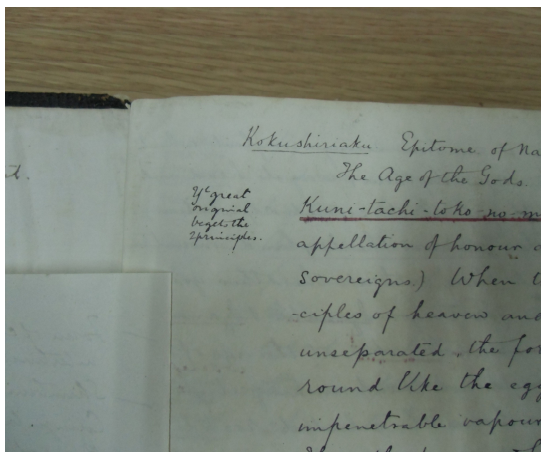 Kokushiriaku. Epitome of Na
The Age of the Gods.
Ye great
original
begets the
2 principles.
Kuni-tachi-toko-no-m
appellation of honour
Sovereigns.) When
-ciples of heaven and
unseparated, the for
round like the egg
impenetrable vapour